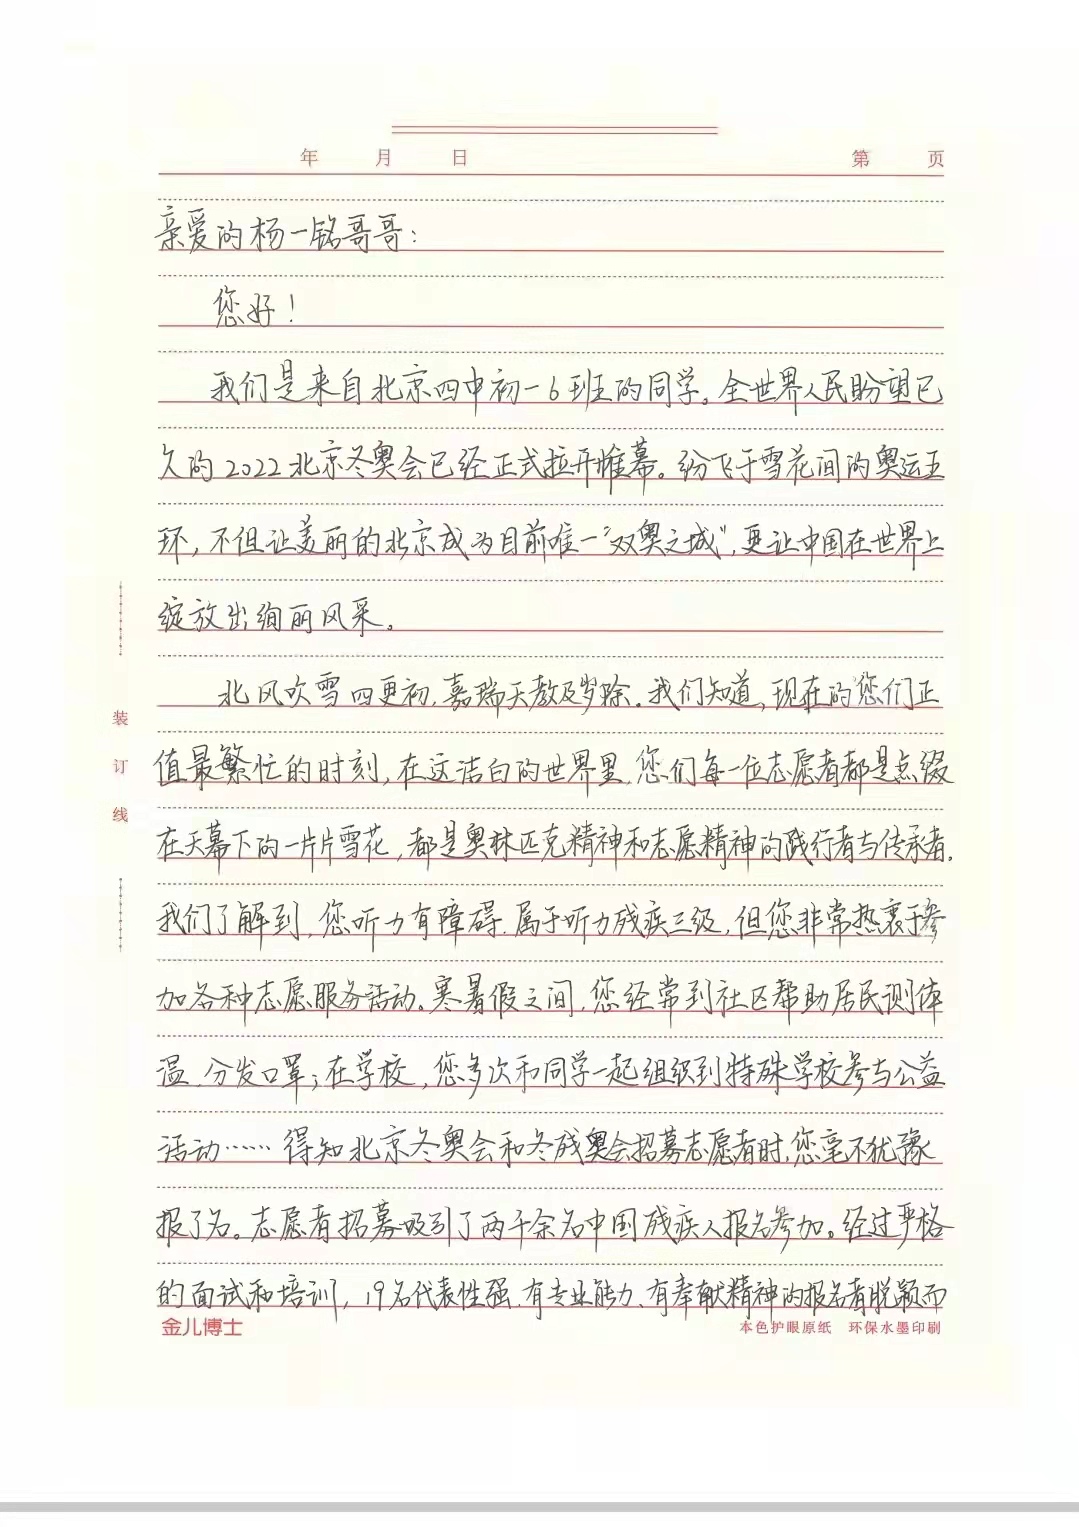 年 月 日 第 页
亲爱的杨一铭哥哥：
您好！
我们是来自北京四中初一6班的同学。全世界人民盼望已
久的2022北京冬奥会已经正式拉开帷幕。纷飞于雪花间的奥运五
环，不但让美丽的北京成为目前唯一“双奥之城”，更让中国在世界上
绽放出绚丽风采。
北风吹雪四更初，嘉瑞天教及岁除。我们知道，现在的您们正
值最繁忙的时刻，在这洁白的世界里，您们每一位志愿者都是点缀
在天幕下的一片片雪花，都是奥林匹克精神和志愿精神的践行者与传承者。
我们了解到，您听力有障碍，属于听力残疾三级，但您非常热衷于参
加各种志愿服务活动。寒暑假之间，您经常到社区帮助居民测体
温、分发口罩；在学校，您多次和同学一起组织到特殊学校参与公益
活动……得知北京冬奥会和冬残奥会招募志愿者时，您毫不犹豫
报了名。志愿者招募吸引了两千余名中国残疾人报名参加。经过严格
的面试和培训，19名代表性强、有专业能力、有奉献精神的报名者脱颖而
装
订
线
金儿博士 本色护眼原纸 环保水墨印刷